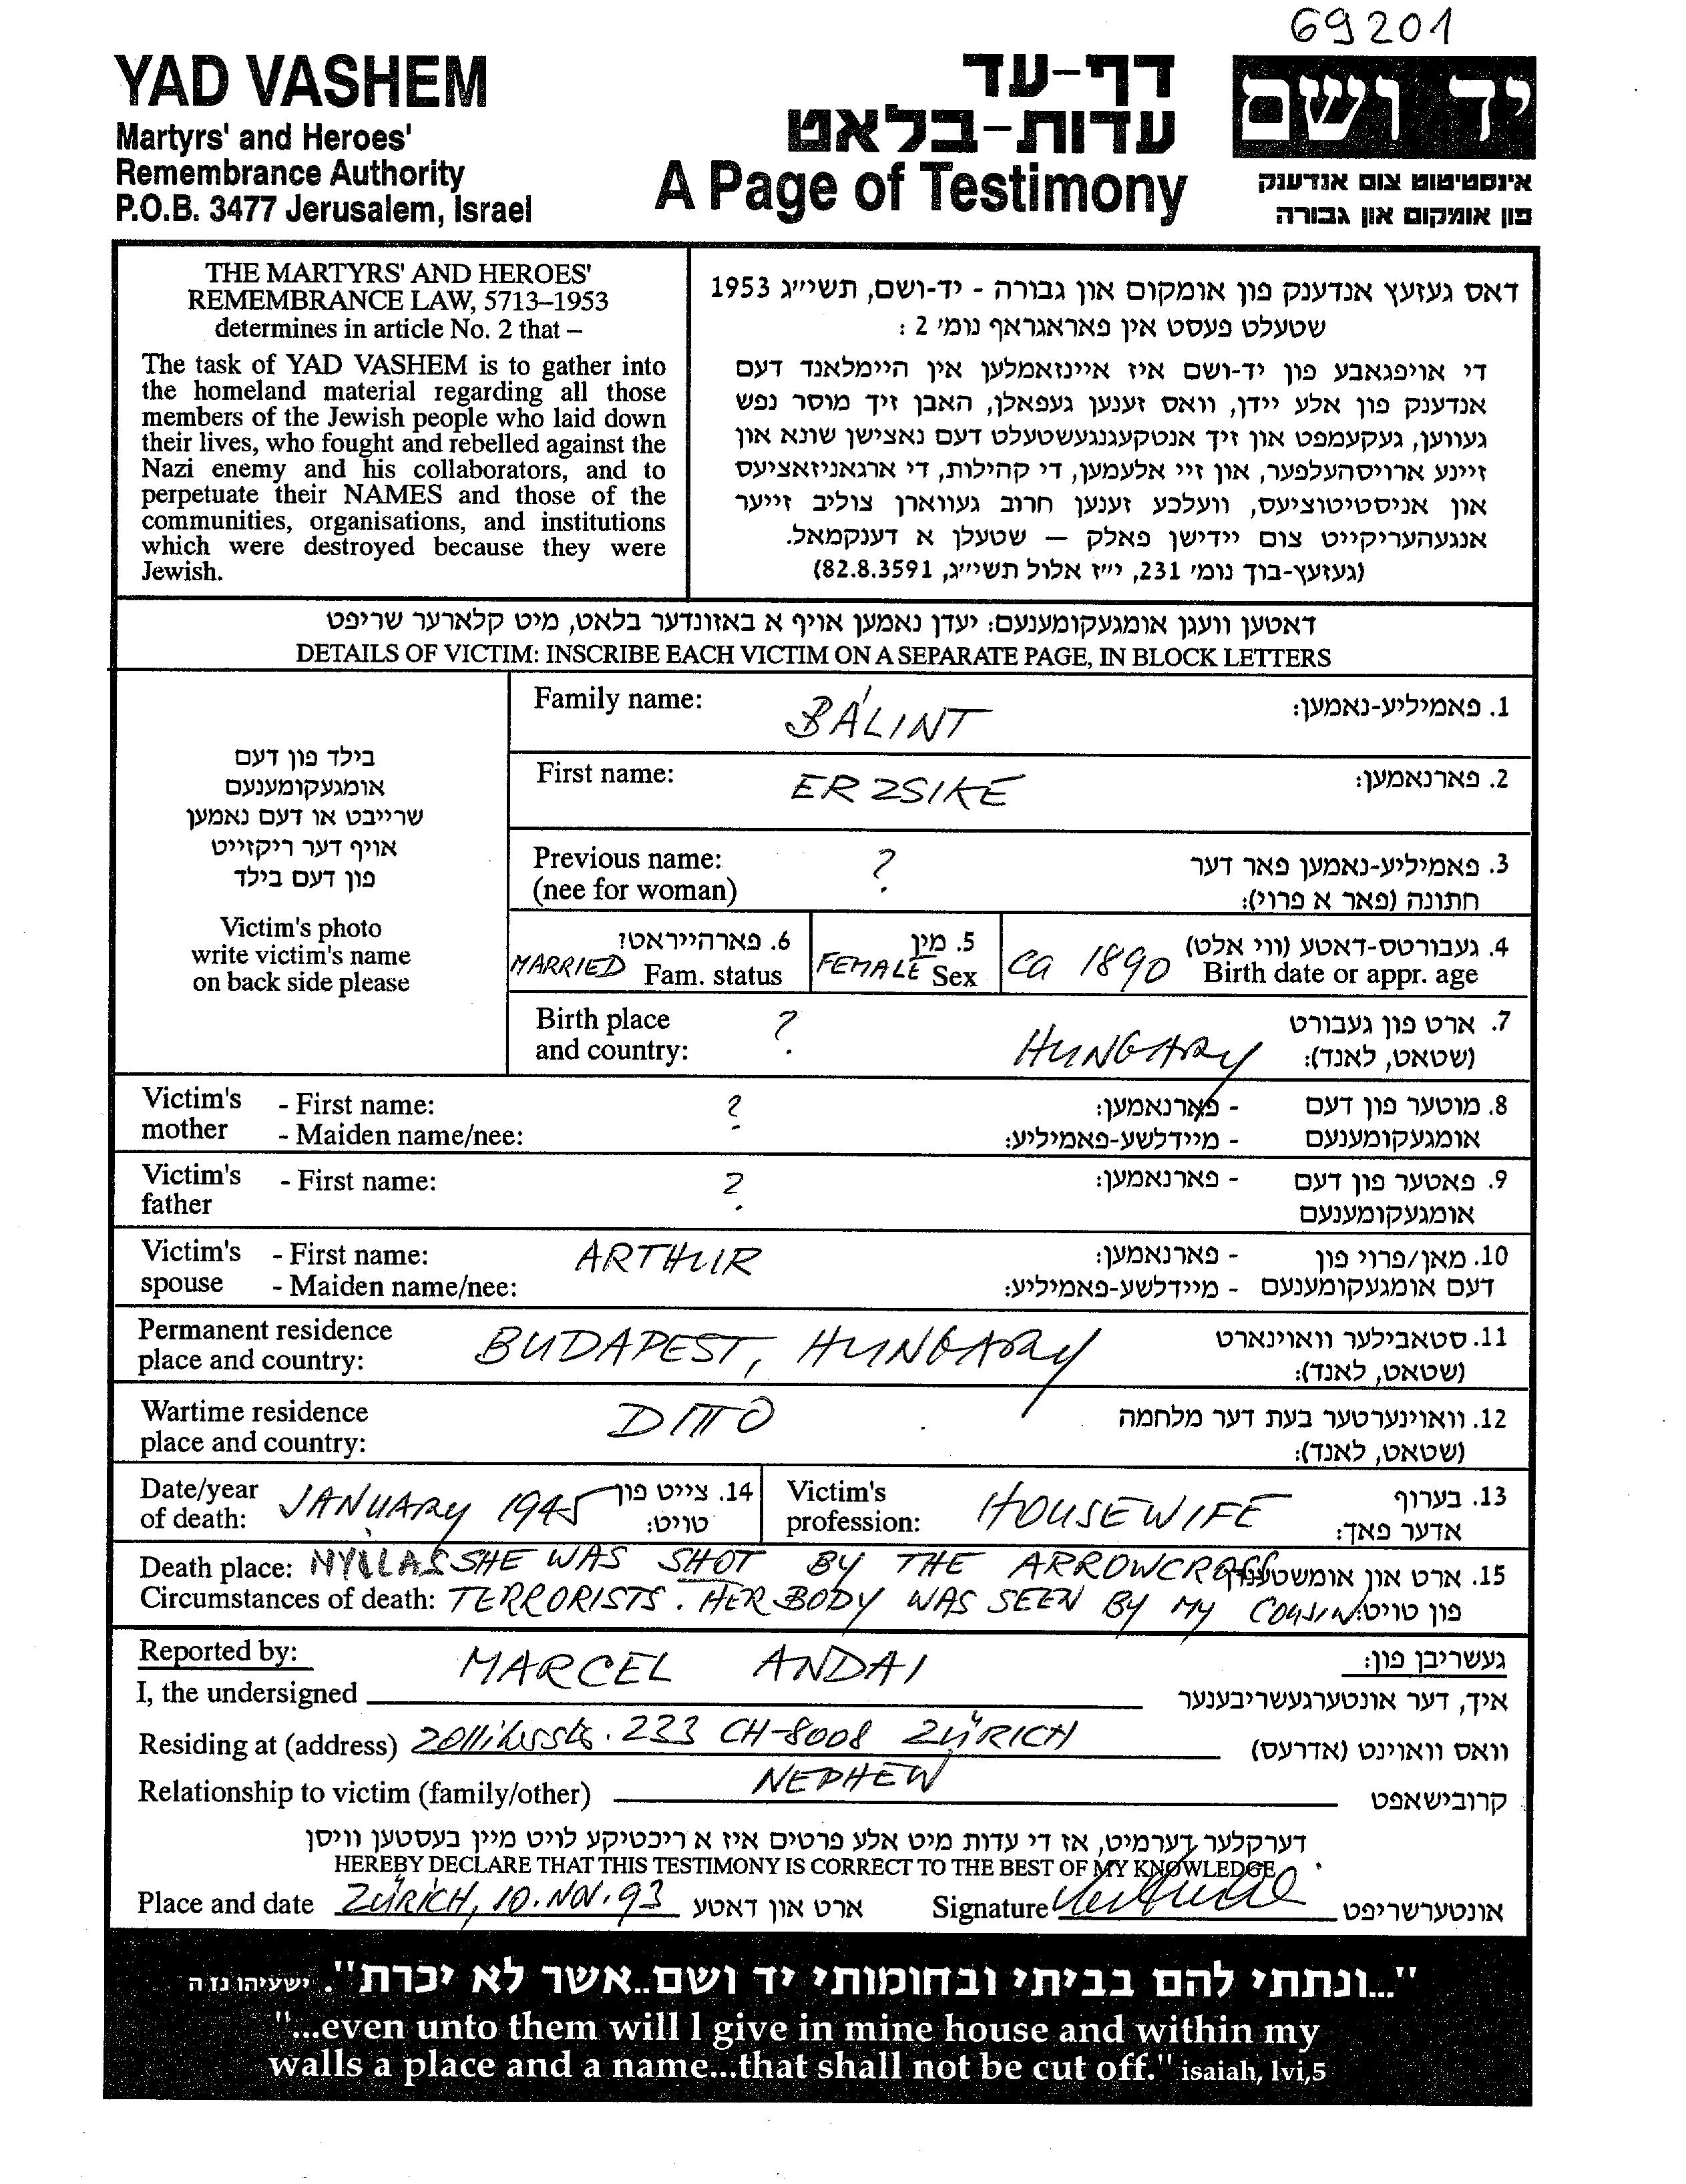 69201
YAD VASHEM
Martyrs' and Heroes'
Remembrance Authority
P.O.B. 3477 Jerusalem, Israel
דף-עד
עדות-בלאט
A Page of Testimony
יד ושם
אינסטיטוט צום אנדענק
פון אומקום און גבורה
THE MARTYRS' AND HEROES'
REMEMBRANCE LAW, 5713–1953
determines in article No. 2 that –
The task of YAD VASHEM is to gather into
the homeland material regarding all those
members of the Jewish people who laid down
their lives, who fought and rebelled against the
Nazi enemy and his collaborators, and to
perpetuate their NAMES and those of the
communities, organisations, and institutions
which were destroyed because they were
Jewish.
דאס געזעץ אנדענק פון אומקום און גבורה - יד-ושם, תשי״ג 1953
שטעלט פעסט אין פאראגראף נומ׳ 2 :
די אויפגאבע פון יד-ושם איז איינזאמלען אין היימלאנד דעם
אנדענק פון אלע יידן, וואס זענען געפאלן, האבן זיך מוסר נפש
געווען, געקעמפט און זיך אנטקעגנגעשטעלט דעם נאצישן שונא און
זיינע ארויסהעלפער, און זיי אלעמען, די קהילות, די ארגאניזאציעס
און אניסטיטוציעס, וועלכע זענען חרוב געווארן צוליב זייער
אנגעהעריקייט צום יידישן פאלק — שטעלן א דענקמאל.
(געזעץ-בוך נומ׳ 231, י״ז אלול תשי״ג, 82.8.3591)
דאטען וועגן אומגעקומענעם: יעדן נאמען אויף א באזונדער בלאט, מיט קלארער שריפט
DETAILS OF VICTIM: INSCRIBE EACH VICTIM ON A SEPARATE PAGE, IN BLOCK LETTERS
בילד פון דעם
אומגעקומענעם
שרייבט או דעם נאמען
אויף דער ריקזייט
פון דעם בילד
Victim's photo
write victim's name
on back side please
Family name: BÁLINT 1. פאמיליע-נאמען:
First name: ERZSIKE 2. פארנאמען:
Previous name: ? 3. פאמיליע-נאמען פאר דער
(nee for woman) חתונה (פאר א פרוי):
6. פארהייראט? 5. מין 4. געבורטס-דאטע (ווי אלט)
MARRIED Fam. status FEMALE Sex ca 1890 Birth date or appr. age
Birth place ? 7. ארט פון געבורט
and country: HUNGARY (שטאט, לאנד):
Victim's - First name: ? - פארנאמען: 8. מוטער פון דעם
mother - Maiden name/nee: - מיידלשע-פאמיליע: אומגעקומענעם
Victim's - First name: ? - פארנאמען: 9. פאטער פון דעם
father אומגעקומענעם
Victim's - First name: ARTHUR - פארנאמען: 10. מאן/פרוי פון
spouse - Maiden name/nee: - מיידלשע-פאמיליע: דעם אומגעקומענעם
Permanent residence BUDAPEST, HUNGARY 11. סטאבילער וואוינארט
place and country: (שטאט, לאנד):
Wartime residence DITTO 12. וואוינערטער בעת דער מלחמה
place and country: (שטאט, לאנד):
Date/year JANUARY 1945 14. צייט פון Victim's HOUSEWIFE 13. בערוף
of death: טויט: profession: אדער פאך:
Death place: NYILLAS SHE WAS SHOT BY THE ARROWCROSS 15. ארט און אומשטענדן
Circumstances of death: TERRORISTS. HER BODY WAS SEEN BY MY COUSIN פון טויט:
Reported by: MARCEL ANDAI געשריבן פון:
I, the undersigned איך, דער אונטערגעשריבענער
Residing at (address) Zollikerstr. 233 CH-8008 ZÜRICH וואס וואוינט (אדרעס)
Relationship to victim (family/other) NEPHEW קרובישאפט
דערקלער דערמיט, אז די עדות מיט אלע פרטים איז א ריכטיקע לויט מיין בעסטען וויסן
HEREBY DECLARE THAT THIS TESTIMONY IS CORRECT TO THE BEST OF MY KNOWLEDGE
Place and date ZÜRICH, 10. NOV. 93 ארט און דאטע Signature אונטערשריפט
"...ונתתי להם בביתי ובחומותי יד ושם..אשר לא יכרת". ישעיהו נו ה
"...even unto them will I give in mine house and within my
walls a place and a name...that shall not be cut off." isaiah, lvi,5